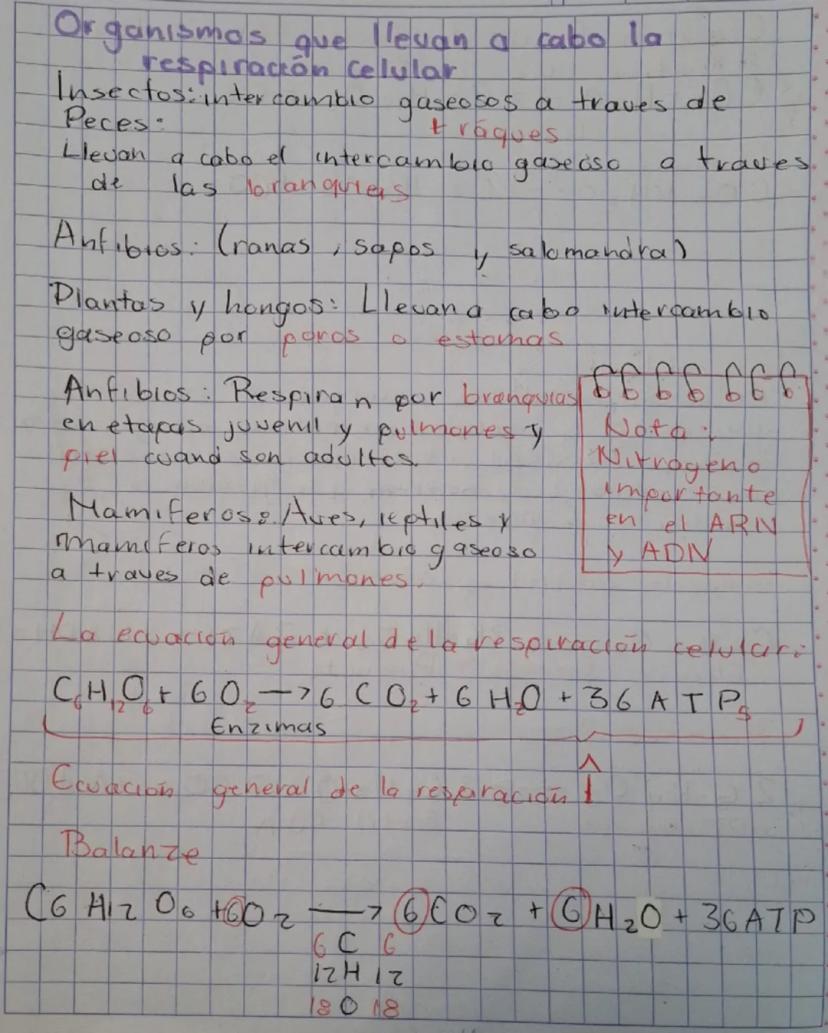 Organismos que llevan a cabo la
respiración celular
Insectos: intercambio gaseosos a traves de
Peces: tráques
Llevan a cabo el intercambio gaseoso a traves
de las branquias
Anfibios: (ranas, sapos y salamandra)
Plantas y hongos: Llevan a cabo intercambio
gaseoso por poros o estomas
Anfibios: Respiran por branquias
en etapas juvenil y pulmones y
piel cuand son adultos.
Nota:
Nitrogeno
importante
en el ARN
y ADN
Mamiferos: Aves, reptiles y
mamiferos intercambio gaseoso
a traves de pulmones.
La ecuación general de la respiración celular:
C₆H₁₂O₆ + 6 O₂ → 6 CO₂ + 6 H₂O + 36 A T Ps
Enzimas
Ecuación general de la respiración
Balanze
C6 H12 O6 + 6O2 → 6CO2 + 6H2O + 36ATP
6 C 6
12 H 12
18 O 18